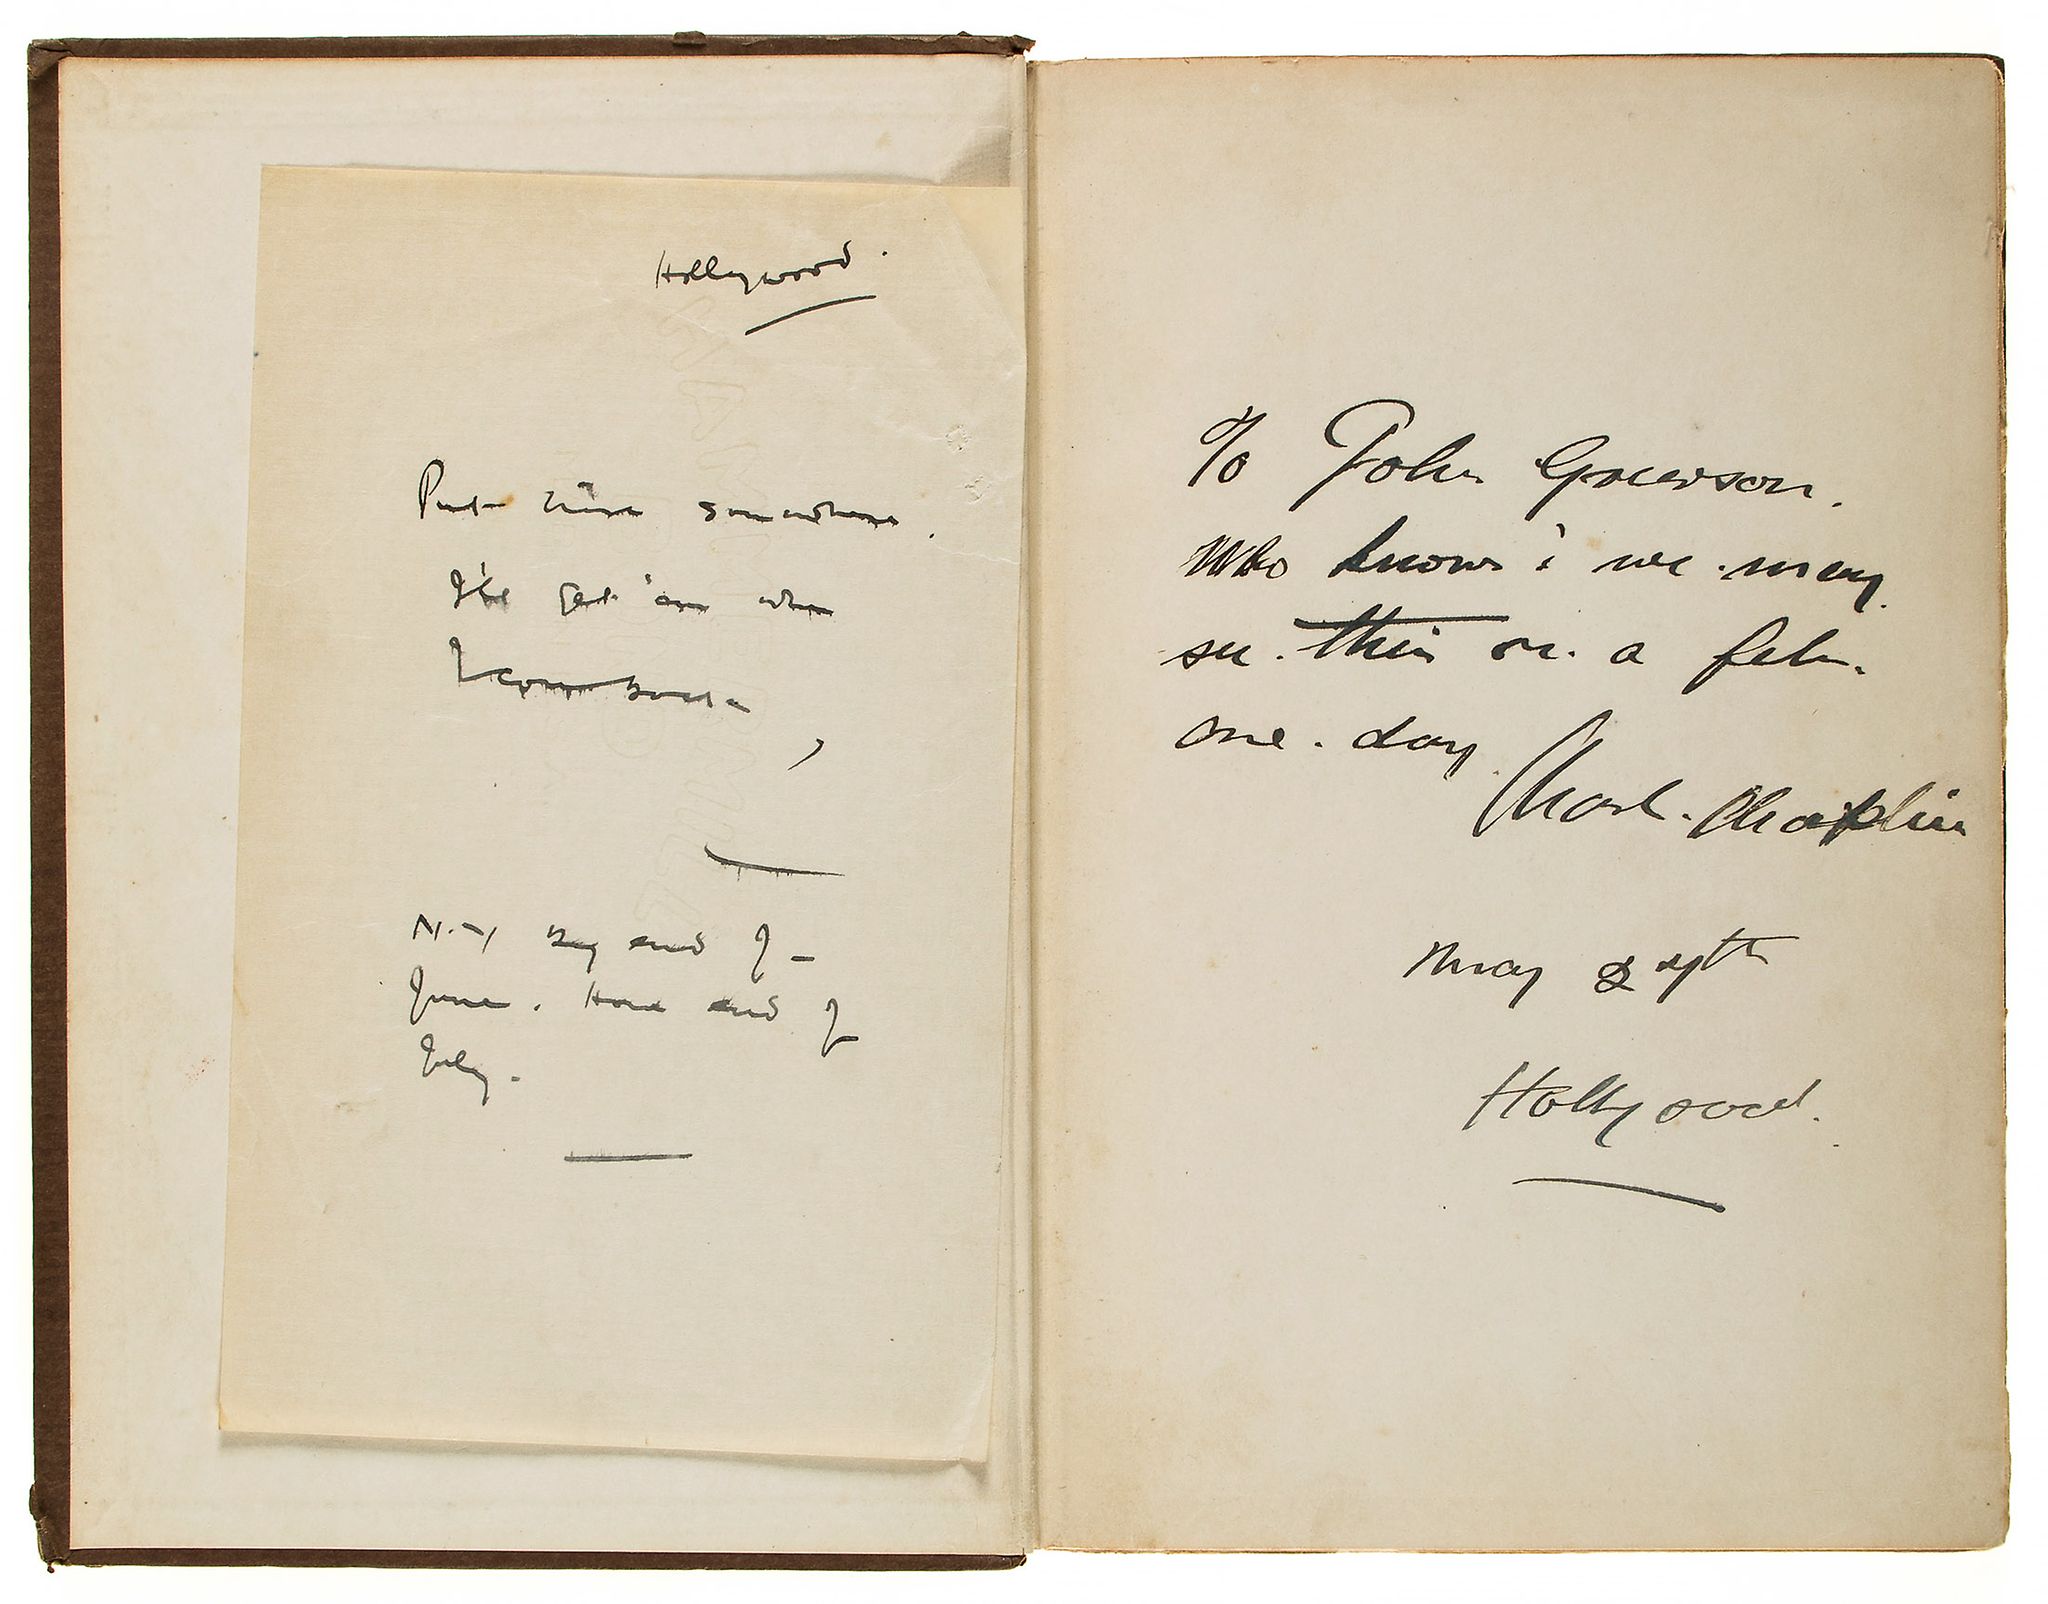 Hollywood.
Put here somewhere.
I'll get 'em when
I come back
N.Y by end of
June. Home end of
July.
To John Grierson.
Who knows i we may
see this on a film
one day
Charl. Chaplin
May 27th
Hollywood.